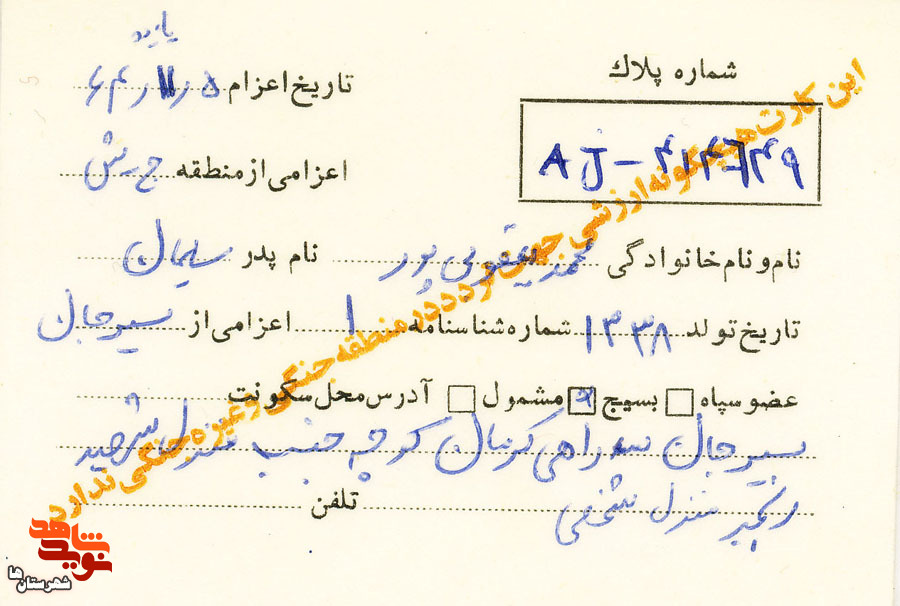 شماره پلاك
AJ-۴۱۴۶۴۹
تاریخ اعزام
اعزامی از منطقه
نام و نام خانوادگی محمد یعقوبی پور نام پدر سلیمان
تاریخ تولد ۱۳۳۸ شماره شناسنامه ۱ اعزامی از سیرجان
عضو سپاه بسیج مشمول آدرس محل سکونت
سیرجان سه راهی کرمان کوچه جنب منزل شهید
رنجبر منزل شخصی
تلفن
این کارت هیچگونه ارزشی جهت تردد در منطقه جنگی و غیره جنگی ندارد
نوید شاهد
شهرستان‌ها